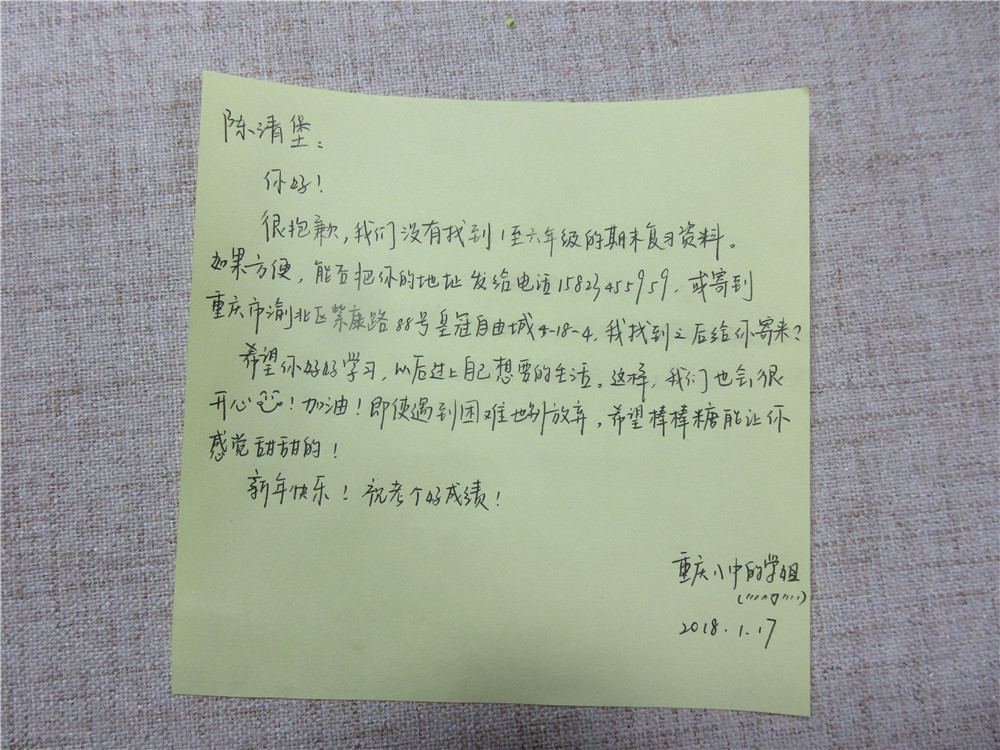 陈清堡：
你好！
很抱歉，我们没有找到1至六年级的期末复习资料。
如果方便，能否把你的地址发给电话15823455959，或寄到
重庆市渝北区紫康路88号皇冠自由城4-18-4，我找到之后给你寄来？
希望你好好学习，以后过上自己想要的生活。这样，我们也会很
开心！加油！即使遇到困难也别放弃，希望棒棒糖能让你
感觉甜甜的！
新年快乐！祝考个好成绩！
重庆八中的学姐
2018.1.17